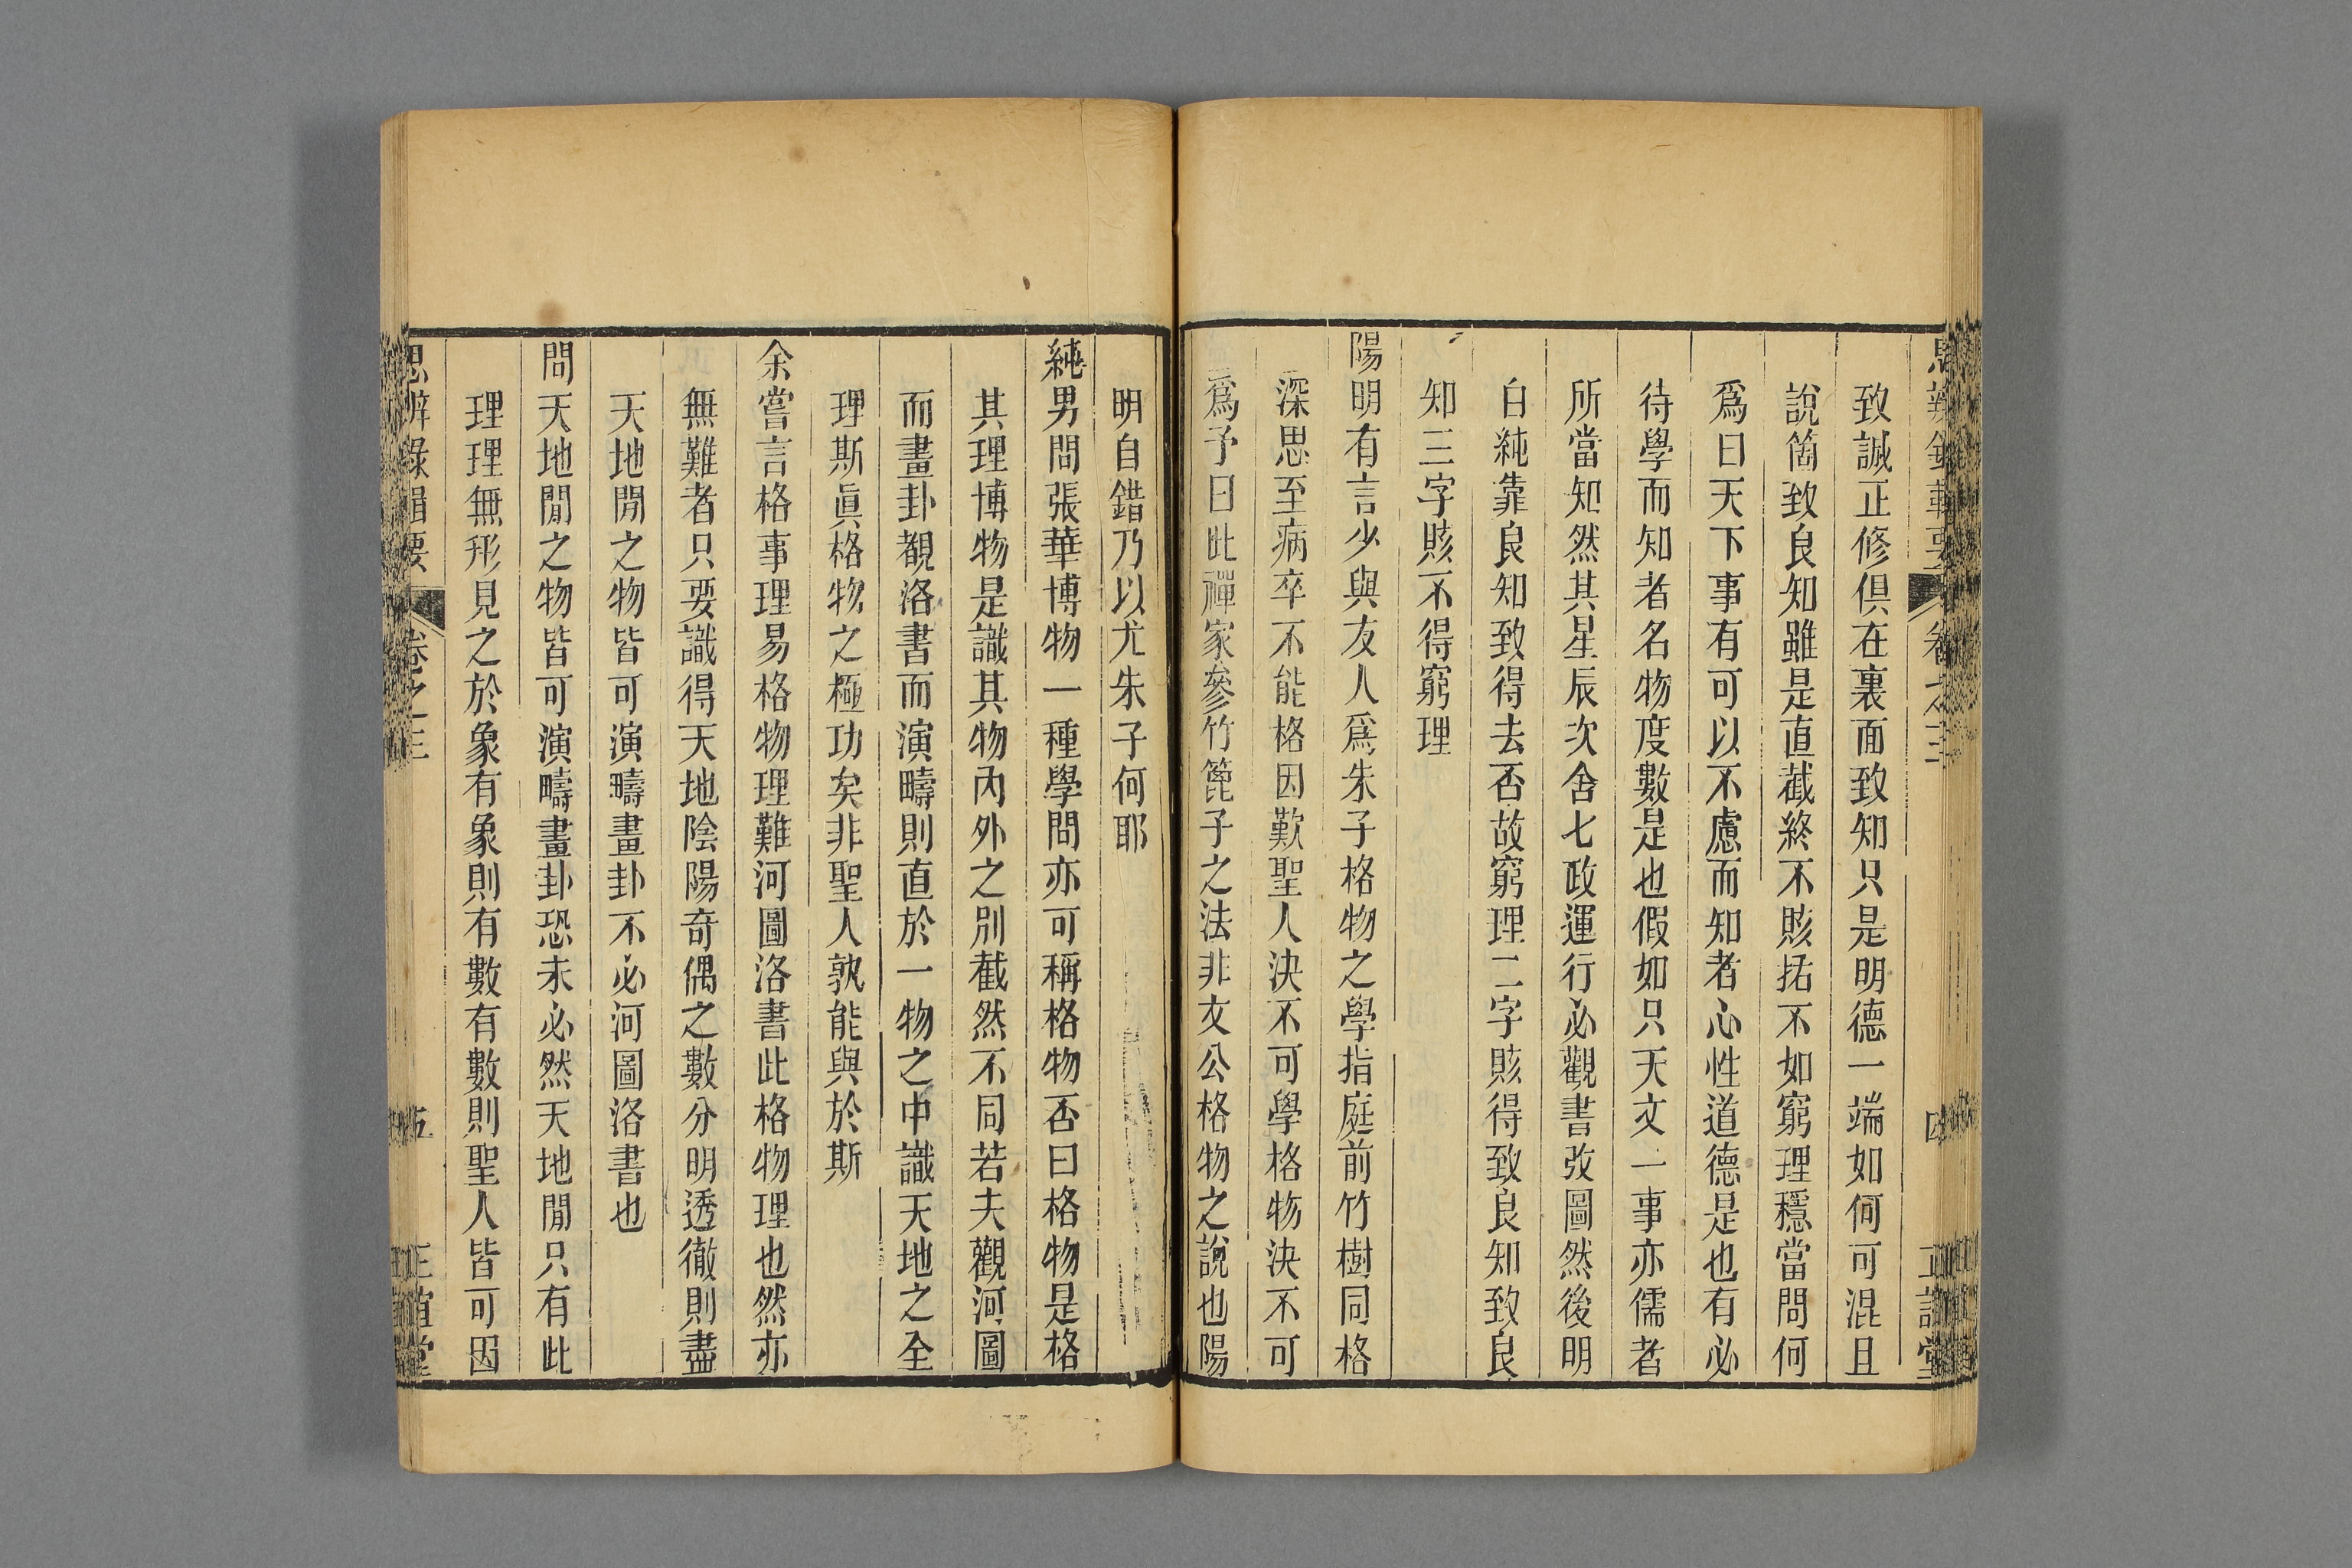 思辨錄輯要　卷之三　四　正誼堂
致誠正修俱在裏面致知只是明德一端如何可混且
說箇致良知雖是直截終不賅括不如窮理穩當問何
爲曰天下事有可以不慮而知者心性道德是也有必
待學而知者名物度數是也假如只天文一事亦儒者
所當知然其星辰次舍七政運行必觀書攷圖然後明
白純靠良知致得去否故窮理二字賅得致良知致良
知三字賅不得窮理
陽明有言少與友人爲朱子格物之學指庭前竹樹同格
深思至病卒不能格因歎聖人決不可學格物決不可
爲予曰此禪家參竹篦子之法非文公格物之說也陽
明自錯乃以尤朱子何耶
純男問張華博物一種學問亦可稱格物否曰格物是格
其理博物是識其物內外之別截然不同若夫觀河圖
而畫卦觀洛書而演疇則直於一物之中識天地之全
理斯眞格物之極功矣非聖人孰能與於斯
余嘗言格事理易格物理難河圖洛書此格物理也然亦
無難者只要識得天地陰陽奇偶之數分明透徹則盡
天地閒之物皆可演疇畫卦不必河圖洛書也
問天地閒之物皆可演疇畫卦恐未必然天地閒只有此
理理無形見之於象有象則有數有數則聖人皆可因
思辨錄輯要　卷之三　五　正誼堂